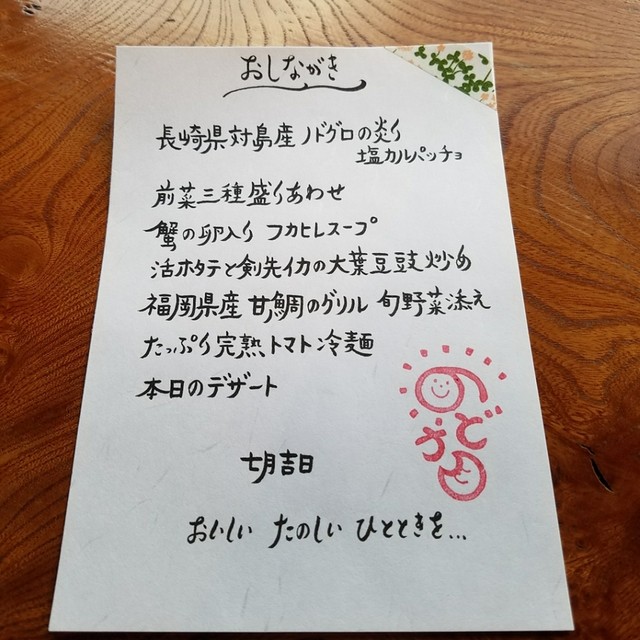 おしながき
長崎県対島産 ノドグロの炙り
塩カルパッチョ
前菜三種盛りあわせ
蟹の卵入り フカヒレスープ
活ホタテと剣先イカの大葉豆豉炒め
福岡県産 甘鯛のグリル 旬野菜添え
たっぷり完熟トマト冷麺
本日のデザート
七月吉日
おいしい たのしい ひとときを...